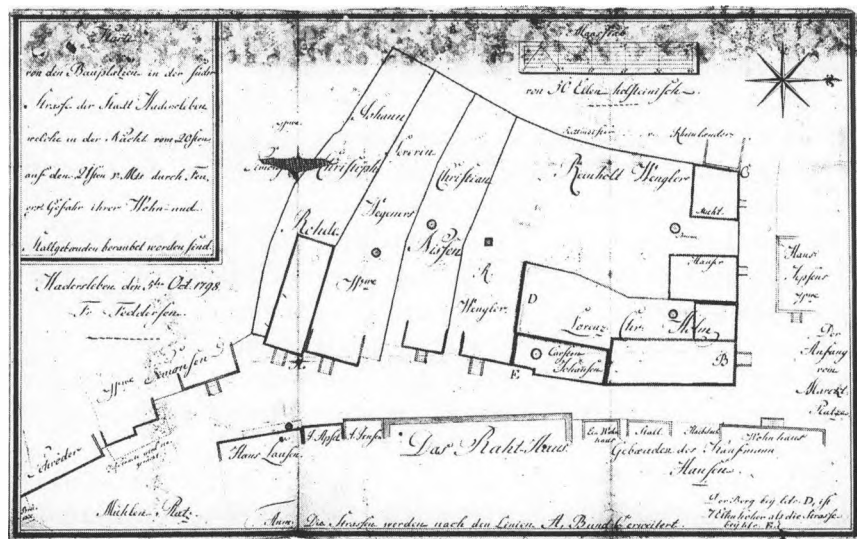 Karte
von den Bauplätzen in der Süder
Strasse der Stadt Hadersleben
welche in der Nacht vom 20sten
auf den 21sten v. Mts durch Feu,
ers Gefahr ihrer Wohn- und
Stallgebäuden beraubet worden sind.
Hadersleben den 5ten Oct. 1798.
Fr. Feddersen.
Maasstab
von 50 Ellen holsteinisch
v.
Johann
Christoph
Rohde
Severin
Wegeners
Christian
Nissen
Reinholt Wengler
R
Wengler
C
Haus
D
Lorenz Chr. Holm
Carsten
Johansen
B
A
E
Hans
Jepsens
Der
Anfang
vom
Marckt
Platze
Simonsen
Schröder
Hans Lausen
Das Raht-Haus
Ein Wohn
haus
Stall
Wohnhaus
Gebæuden des Kaufmann
Hansen
Mühlen Plat.
Anm. Die Strassen werden nach den Linien A, B und C erweitert.
Der Berg bey litr. D, ist
7 Ellen höher als die Strasse
bey litr. E.